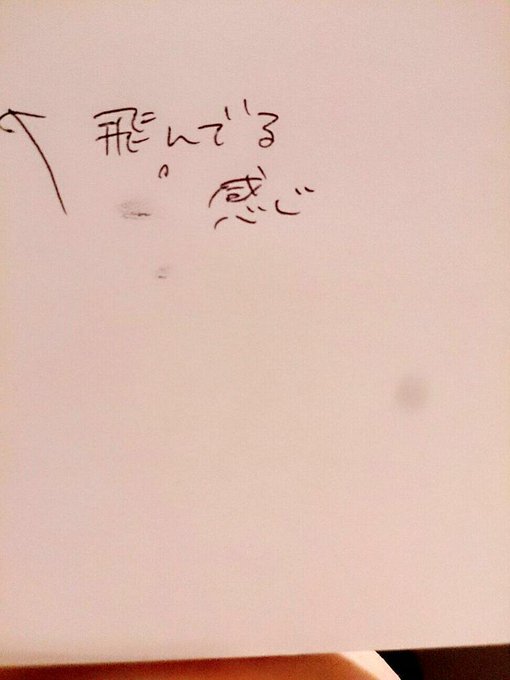 飛んでる
感じ